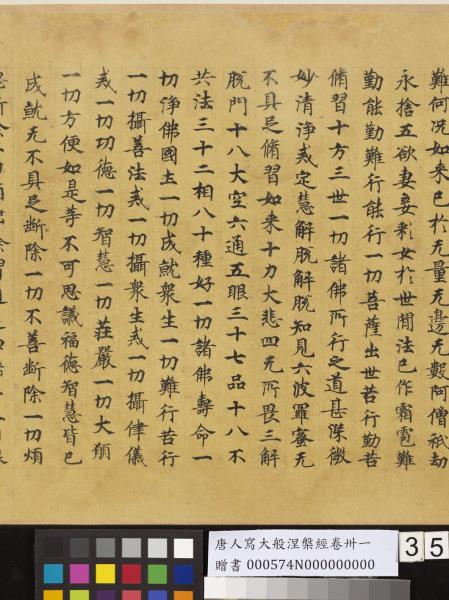 難何况如来已於无量无邊无數阿僧祇劫
永捨五欲妻妾婇女於世間法已作霜雹難
勤能勤難行能行一切菩薩出世苦行勤苦
脩習十方三世一切諸佛所行之道甚深微
妙清淨戒定慧解脫解脫知見六波羅蜜无
不具足脩習如来十力大悲四无所畏三解
脫門十八大空六通五眼三十七品十八不
共法三十二相八十種好一切諸佛壽命一
切淨佛國土一切成就衆生一切難行苦行
一切攝善法戒一切攝衆生戒一切攝律儀
戒一切功德一切智慧一切莊嚴一切大願
一切方便如是等不可思議福德智慧皆已
成就无不具足斷除一切不善斷除一切煩
唐人寫大般涅槃經卷卅一
贈書 000574N000000000
35